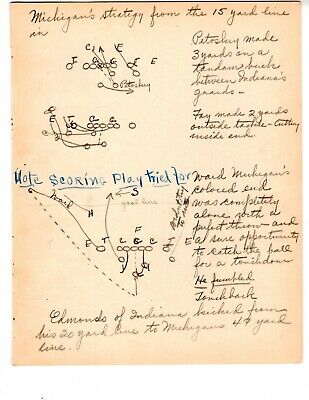 Michigan's strategy from the 15 yard line
in
C E
E T C T
Petoskey
Petoskey made
3 yards on a
tandem buck
between Indiana's
guards—
E T C C E
Fay made 2 yards
outside tackle—cutting
inside end.
Note Scoring Play tried for
Ward
H
S
goal line
E T C C T E
Ward Michigan's
colored end
was completely
alone with a
perfect throw—and
a sure opportunity
to catch the ball
for a touchdown
He fumbled
Touchback
Edmonds of Indiana kicked from
his 20 yard line to Michigans 47 yard
line.